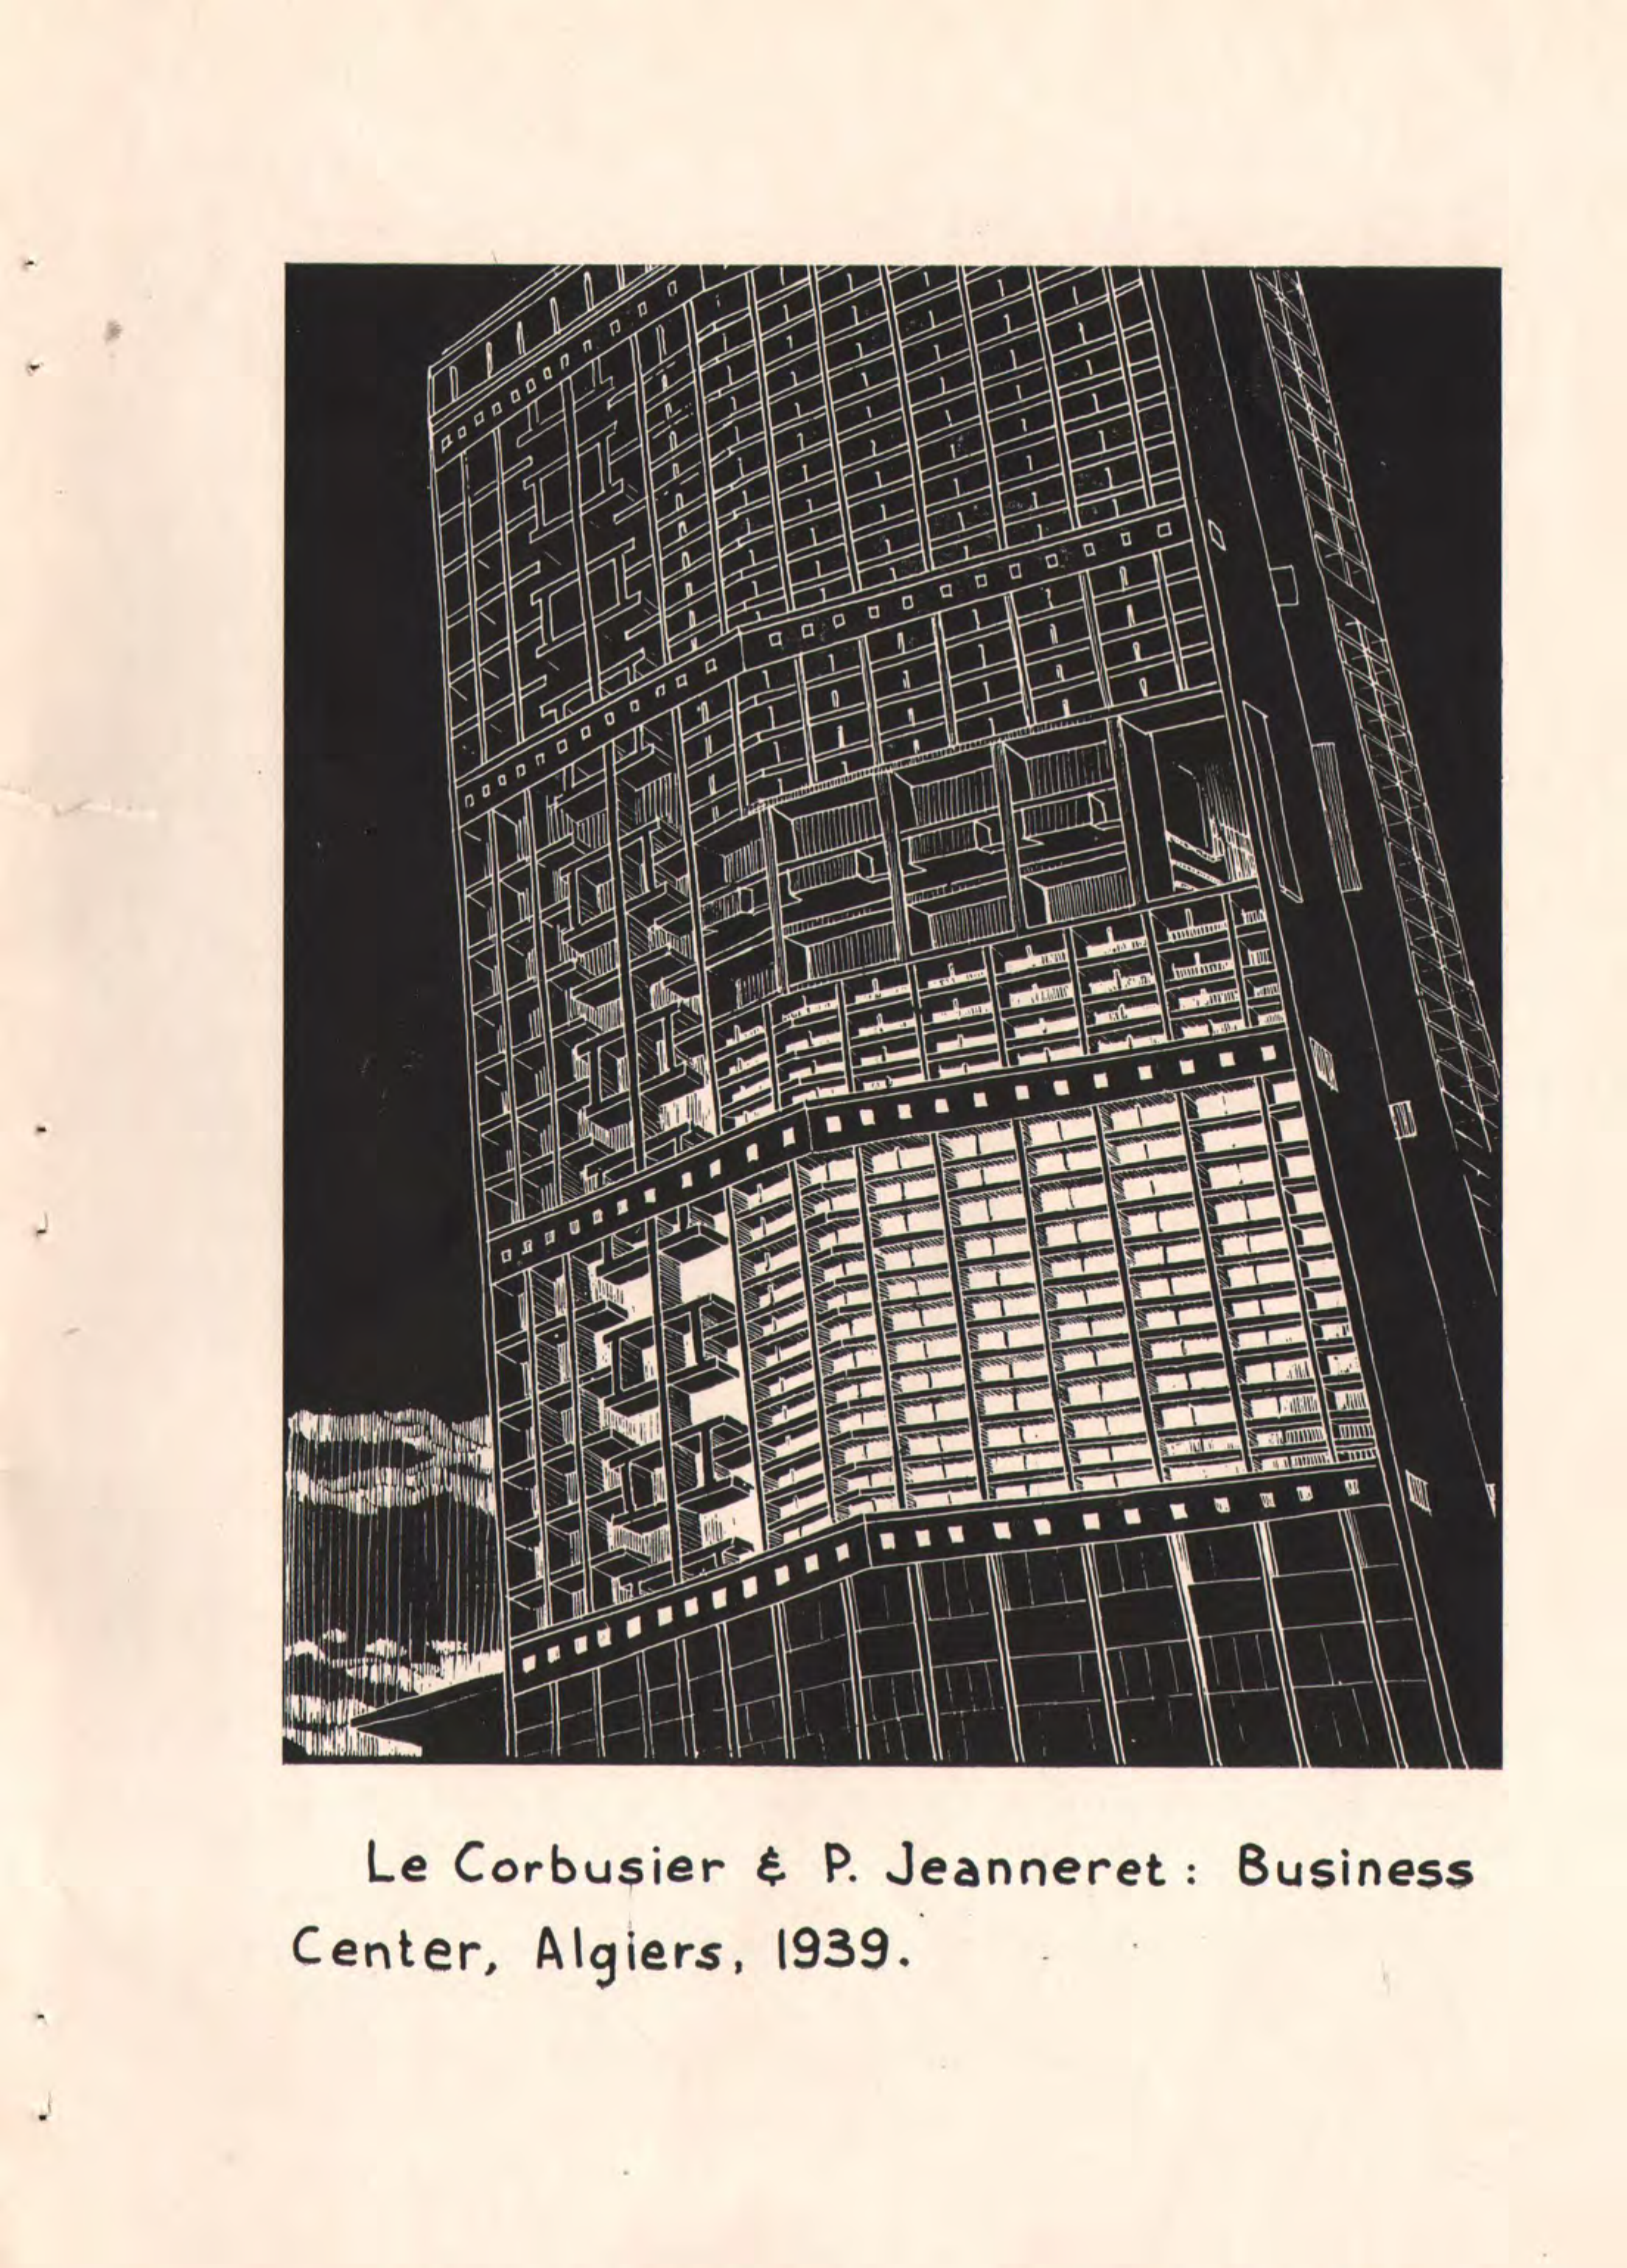 Le Corbusier & P. Jeanneret: Business
Center, Algiers, 1939.